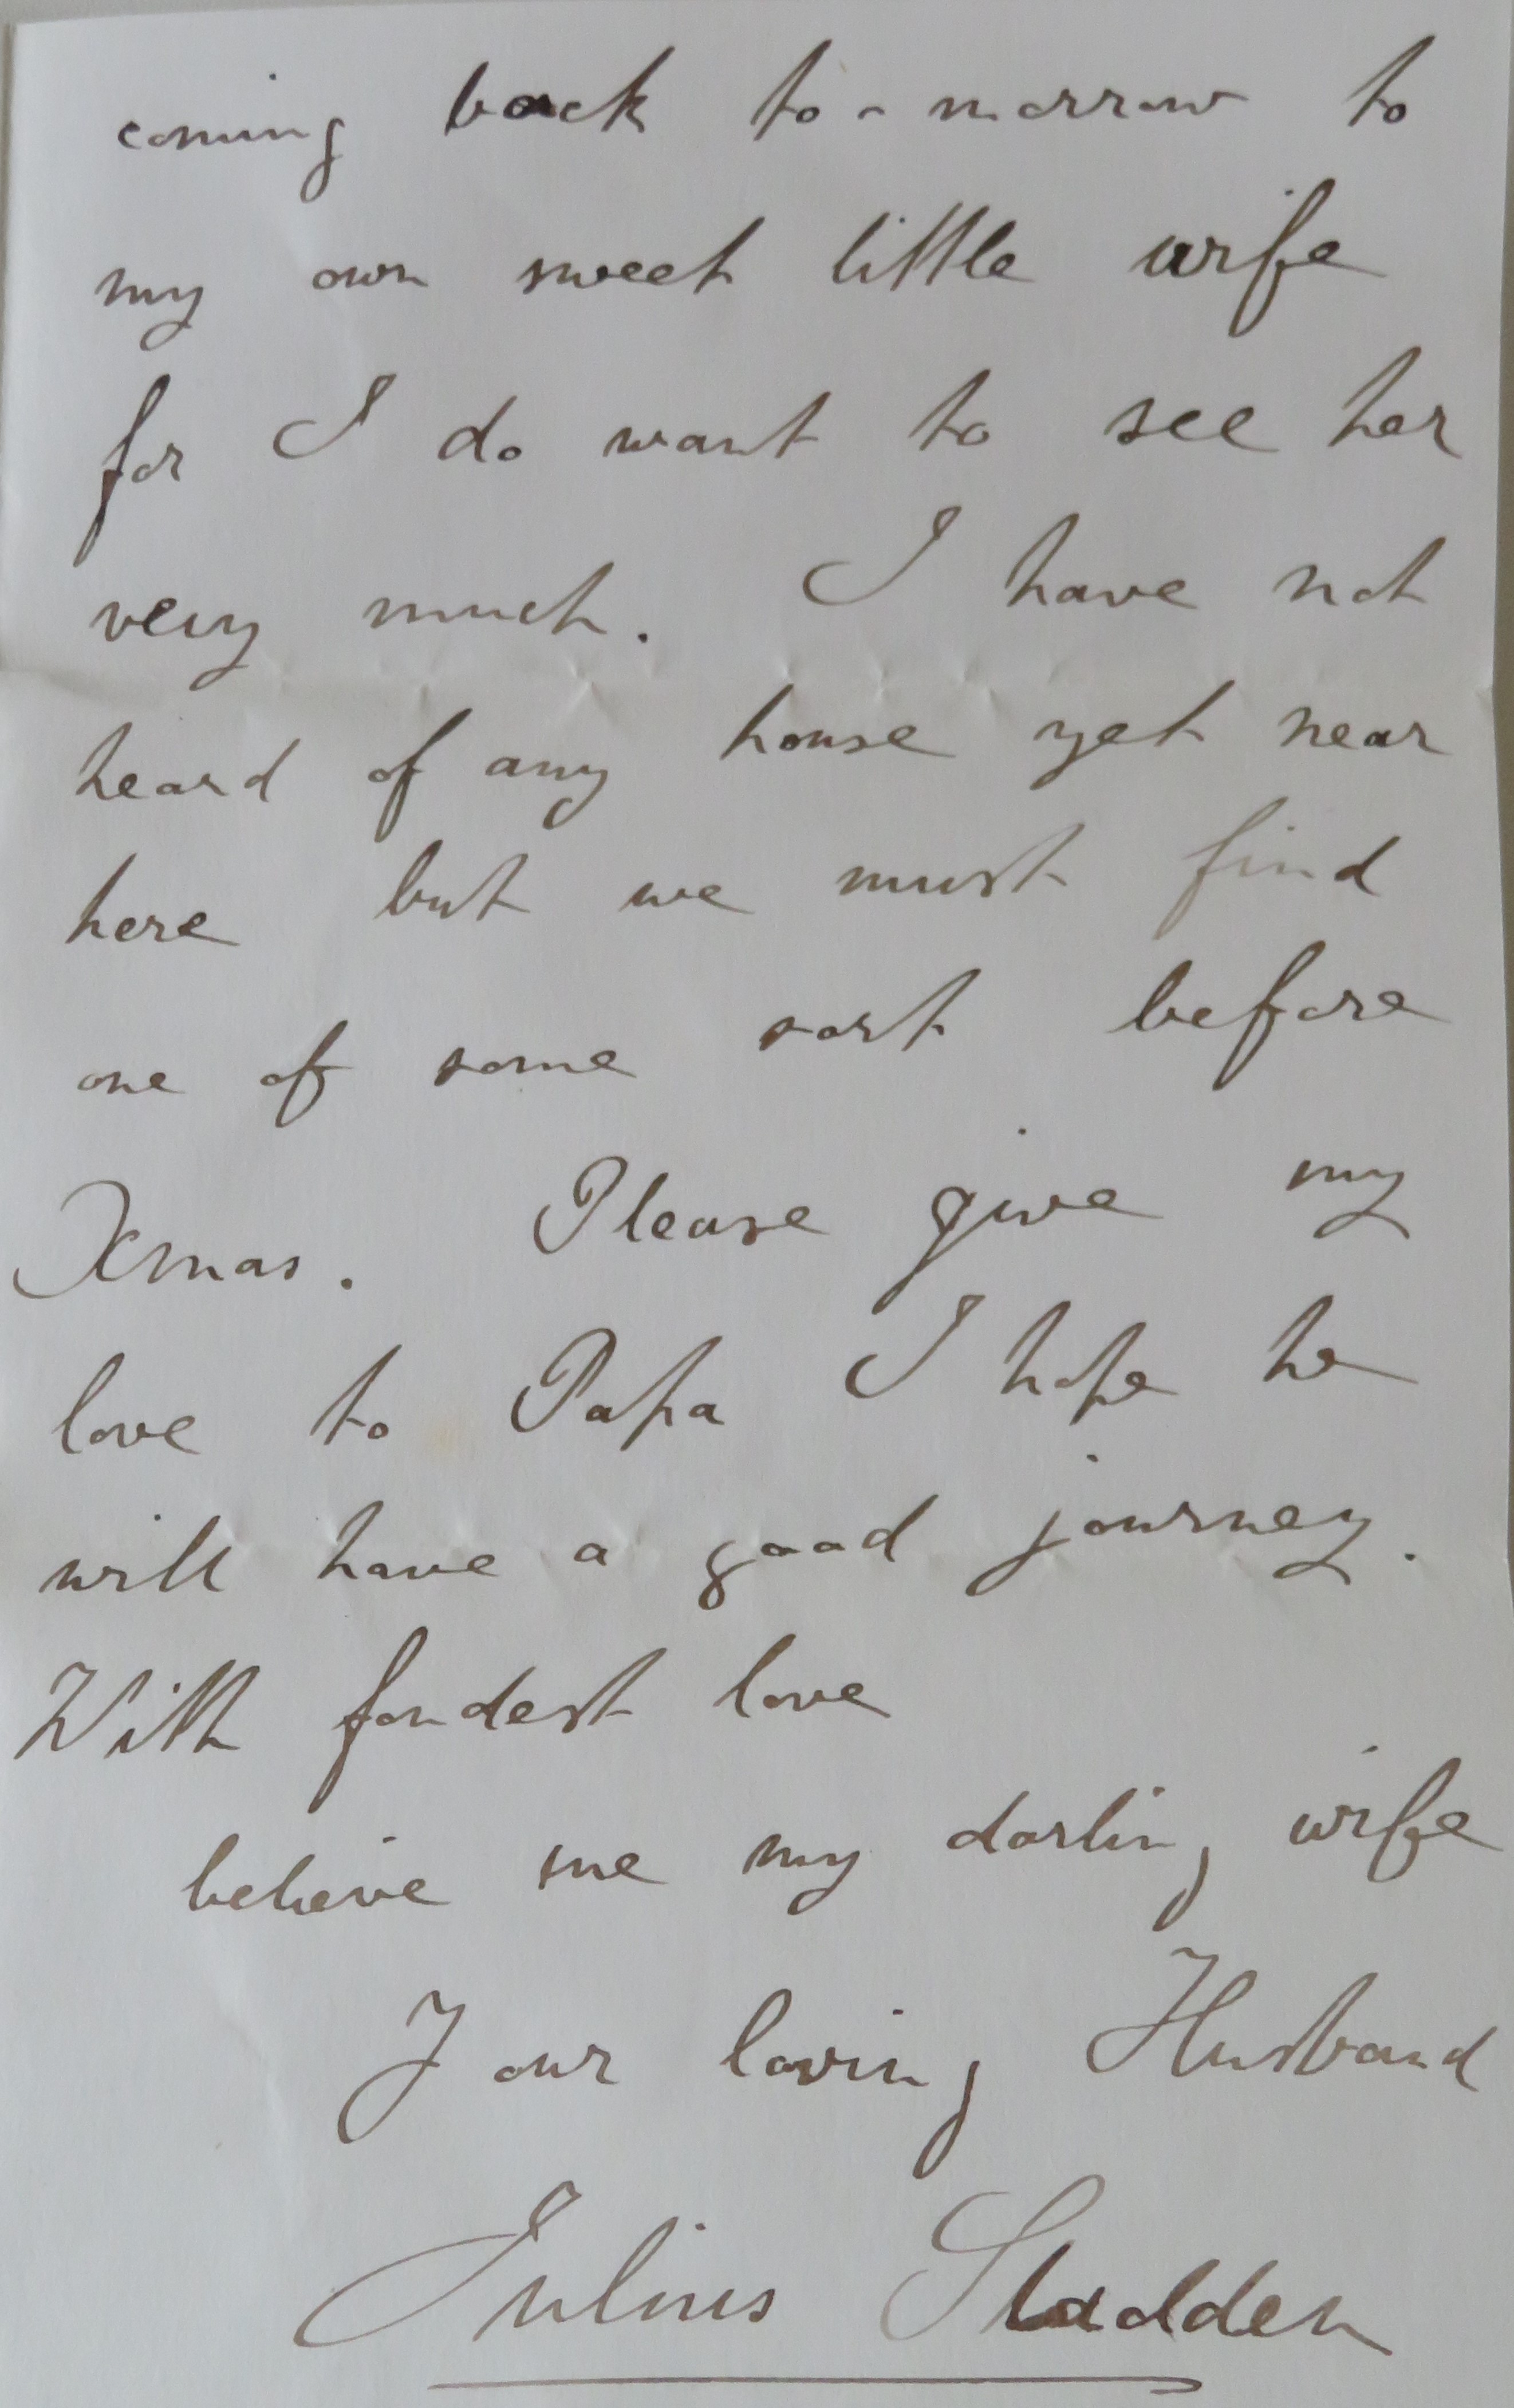 coming back to-morrow to
my own sweet little wife
for I do want to see her
very much. I have not
heard of any house yet near
here but we must find
one of some sort before
Xmas. Please give my
love to Papa I hope he
will have a good journey.
With fondest love
believe me my darling wife
Your loving Husband
Julius Sladden